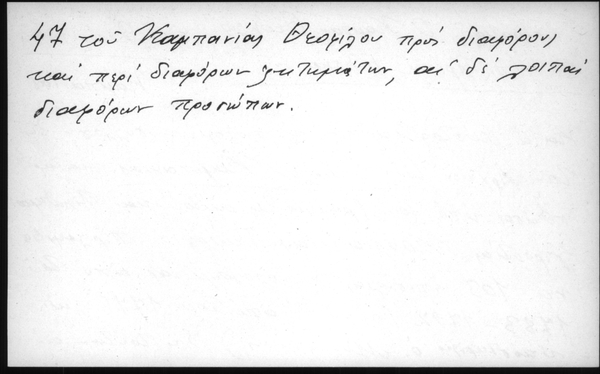 47 τοῦ Καμπανίας Θεοφίλου πρός διαφόρους
καί περί διαφόρων ζητημάτων, αἱ δέ λοιπαί
διαφόρων προσώπων.